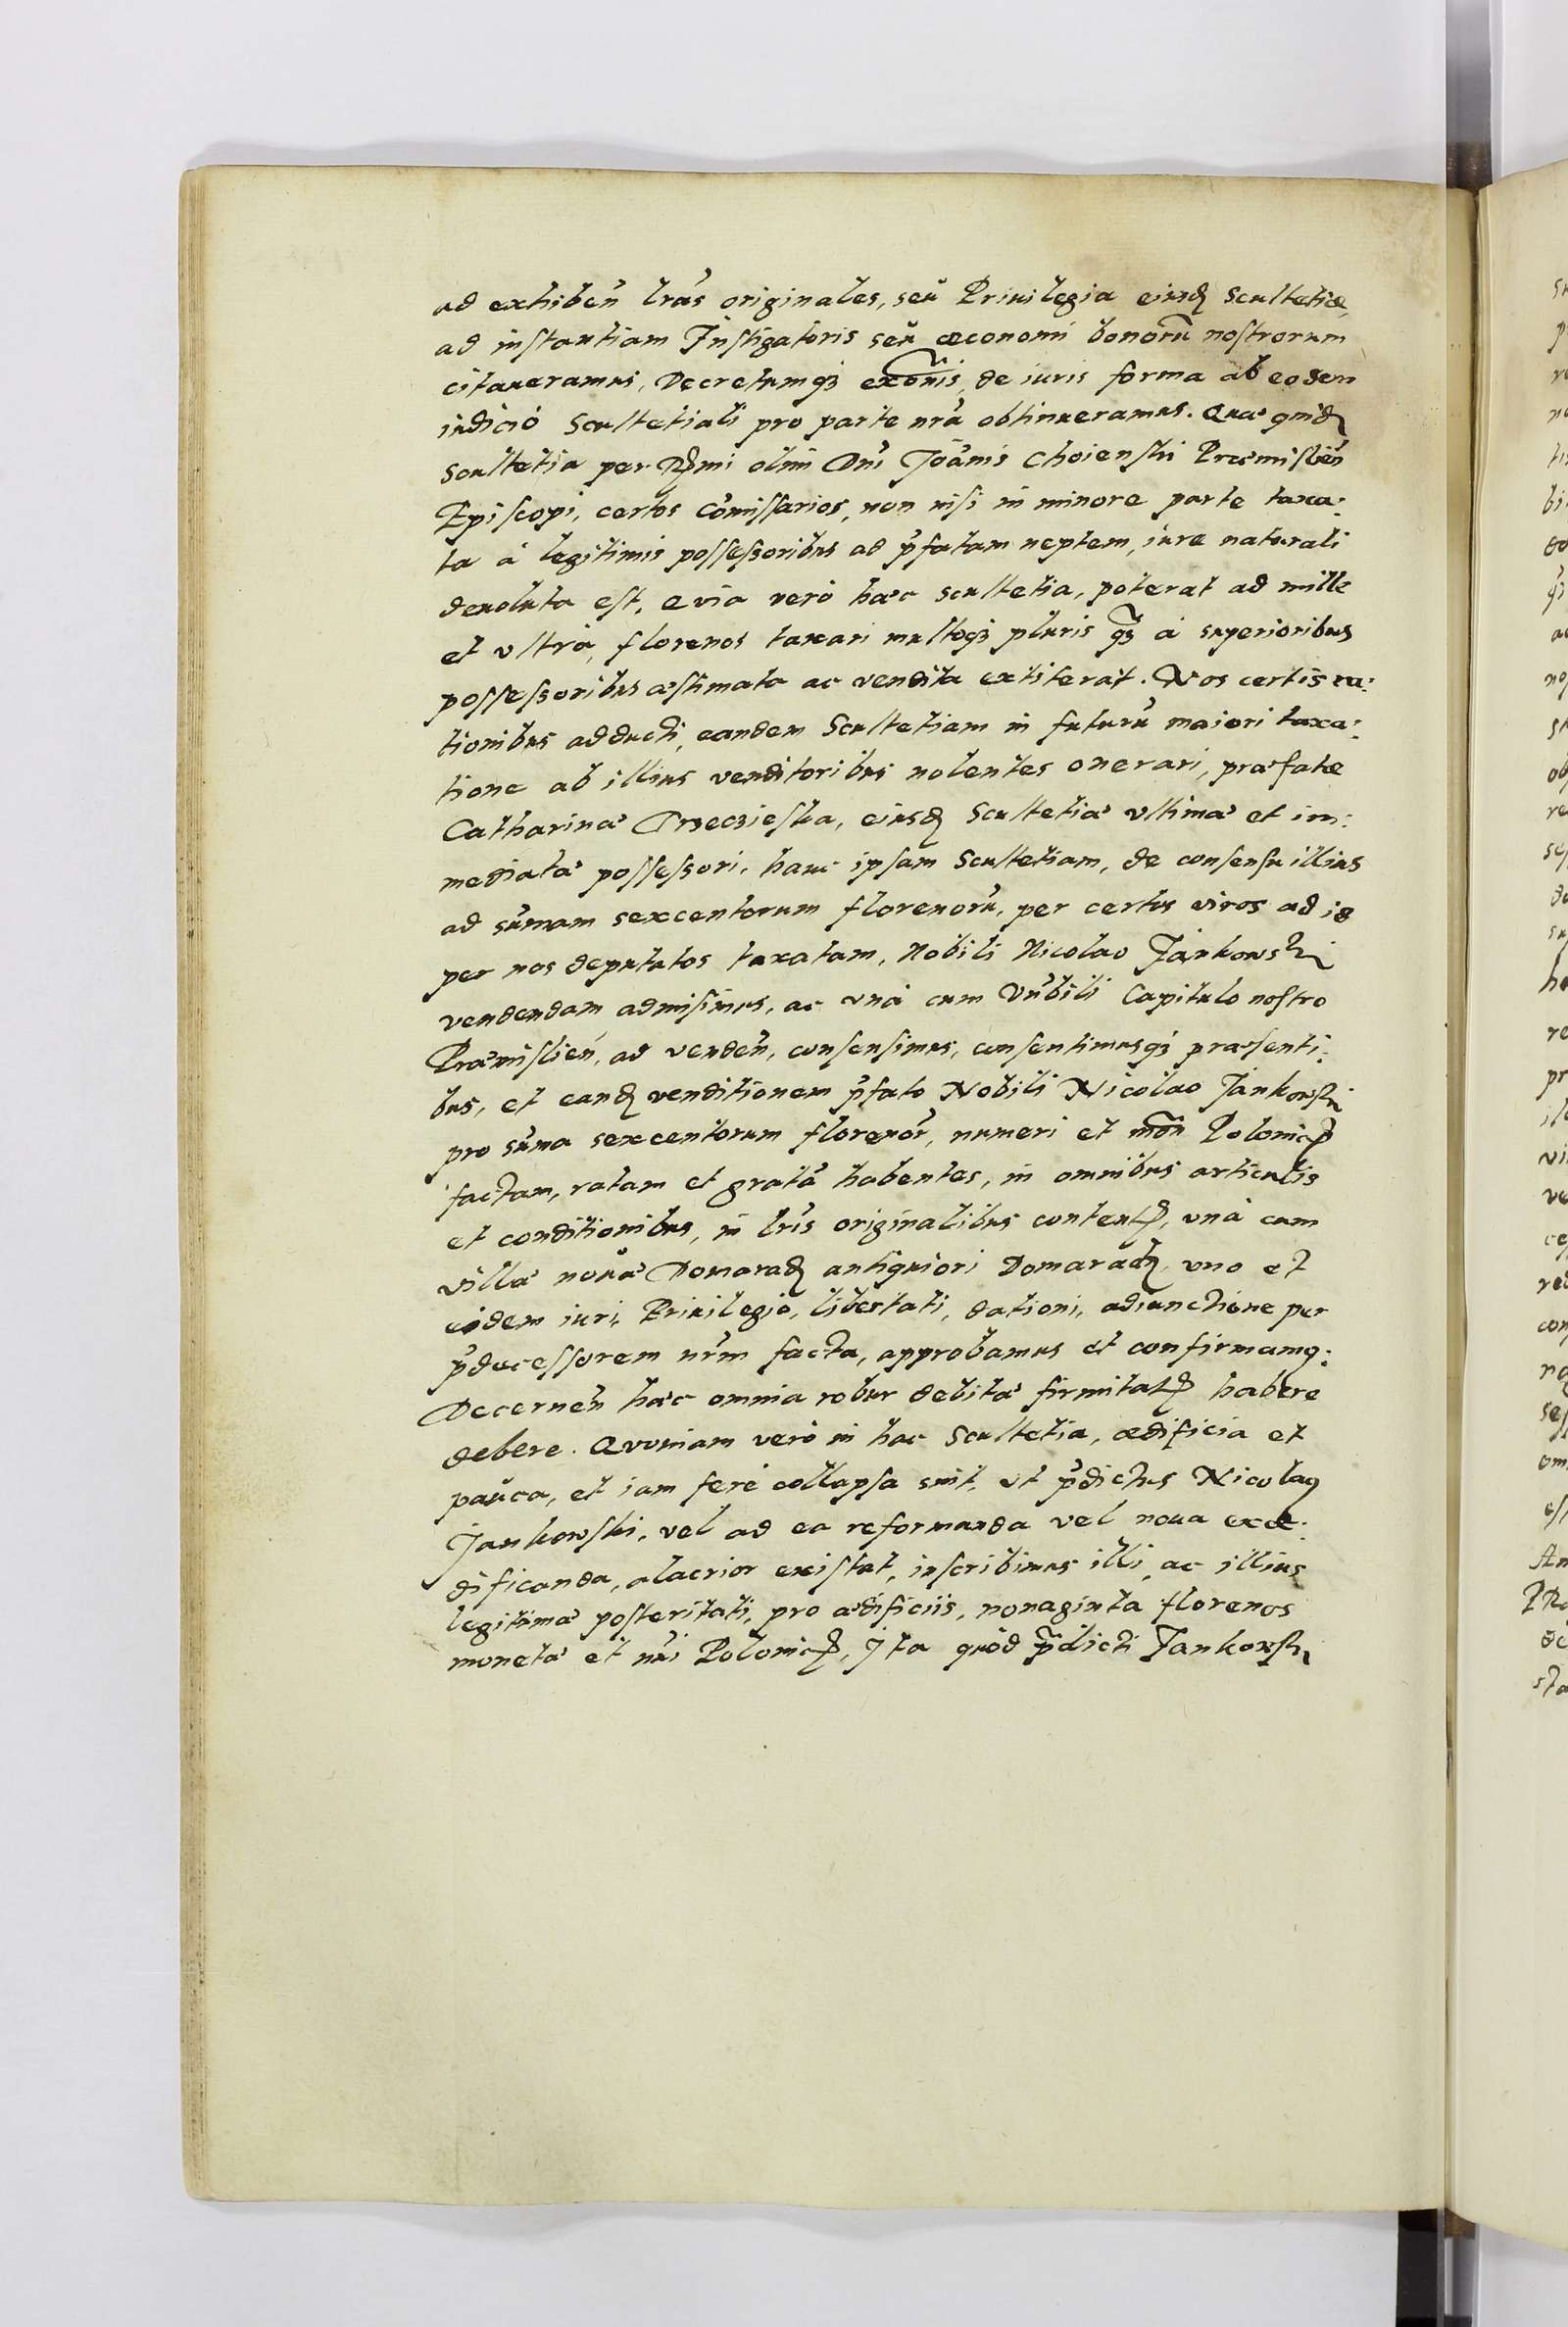 ad exhiben̄ lrãs originales, seu Priuilegia eiusd Scultetiæ,
ad instantiam Instigatoris seu œconomi bonorũ nostrorum
citaueramus, Decretumq3 exõnis, de iuris forma ab eodem
iudició Scultetiali pro parte nrã obtinueramus. Quæ quid
scultetia per Rmi olim Dñi Joãnis Choienski Præmislien̄
Episcopi, certos Cõmissarios, non nisi in minore parte taxa:
ta à legitimis possessoribus ad p̃fatam neptem, iure naturali
deuoluta est, Qvia verò hæc scultetia, poterat ad mille
et vltrà, florenos taxari multoq3 pluris q̃3 à superioribus
possessoribus æstimata ac vendita extiterat. Nos certis ra:
tionibus adducti, eandem Scultetiam in futurũ maiori taxa:
tione ab illius venditoribus nolentes onerari, præfatæ
Catharinæ Przeczieska, eiusd Scultetiæ vltimæ et im:
mediatæ possessori, hanc ipsam Scultetiam, de consensu illius
ad sum̃am sexcentorum florenorũ, per certos viros ad id
per nos deputatos taxatam, Nobili Nicolao Jankowski
vendendam admisimus, ac vnà cum Vñbili Capitulo nostro
Præmislien̄, ad venden̄, consensimus, consentimusq3 præsenti:
bus, et eand venditionem p̃fato Nobili Nicolao Jankowski
pro sum̃a sexcentorum florenor̃, numeri et mõn Polonic
factam, ratam et gratã habentes, in omnibus articulis
et conditionibus, in lrĩs originalibus content, vnà cum
villa noua Domarad antiquiori Domarad, vno et
eidem iuri, Priuilegio, libertati, dationi, adiunctione per
p̃decessorem nrm̃ facta, approbamus et confirmamq:
Decernen̄ hæc omnia robur debitæ firmitat habere
debere. Qvoniam verò in hac Scultetia, ædificia et
pauca, et iam ferè collapsa sint, vt p̃dictus Nicolaq
Jankowski, vel ad ea reformanda vel noua exæ:
dificanda, alacrior existat, inscribimus illi, ac illius
legitimæ posteritati, pro ædificiis, nonaginta florenos
monetæ et nrĩ Polonic, Ita quòd p̃dicti Jankowski